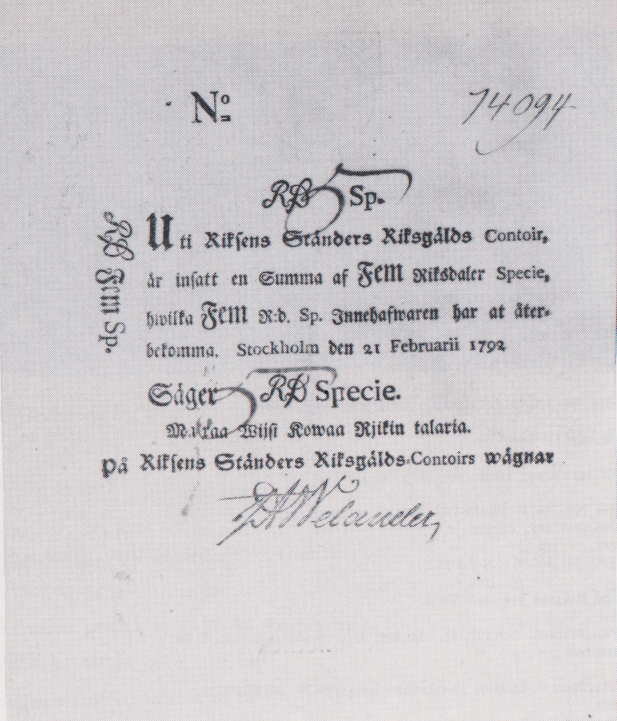 No: 74094
RD 5 Sp.
Uti Rikſens Ständers Riksgälds Contoir,
är inſatt en Summa af Fem Riksdaler Specie,
hwilka Fem R:d. Sp. Innehafwaren har at åter-
bekomma. Stockholm den 21 Februarii 1792
Säger 5 RD Specie.
Maxaa Wijſi Kowaa Rjikin talaria.
på Rikſens Ständers Riksgälds-Contoirs wägnar
Welander,
RD Fem Sp.